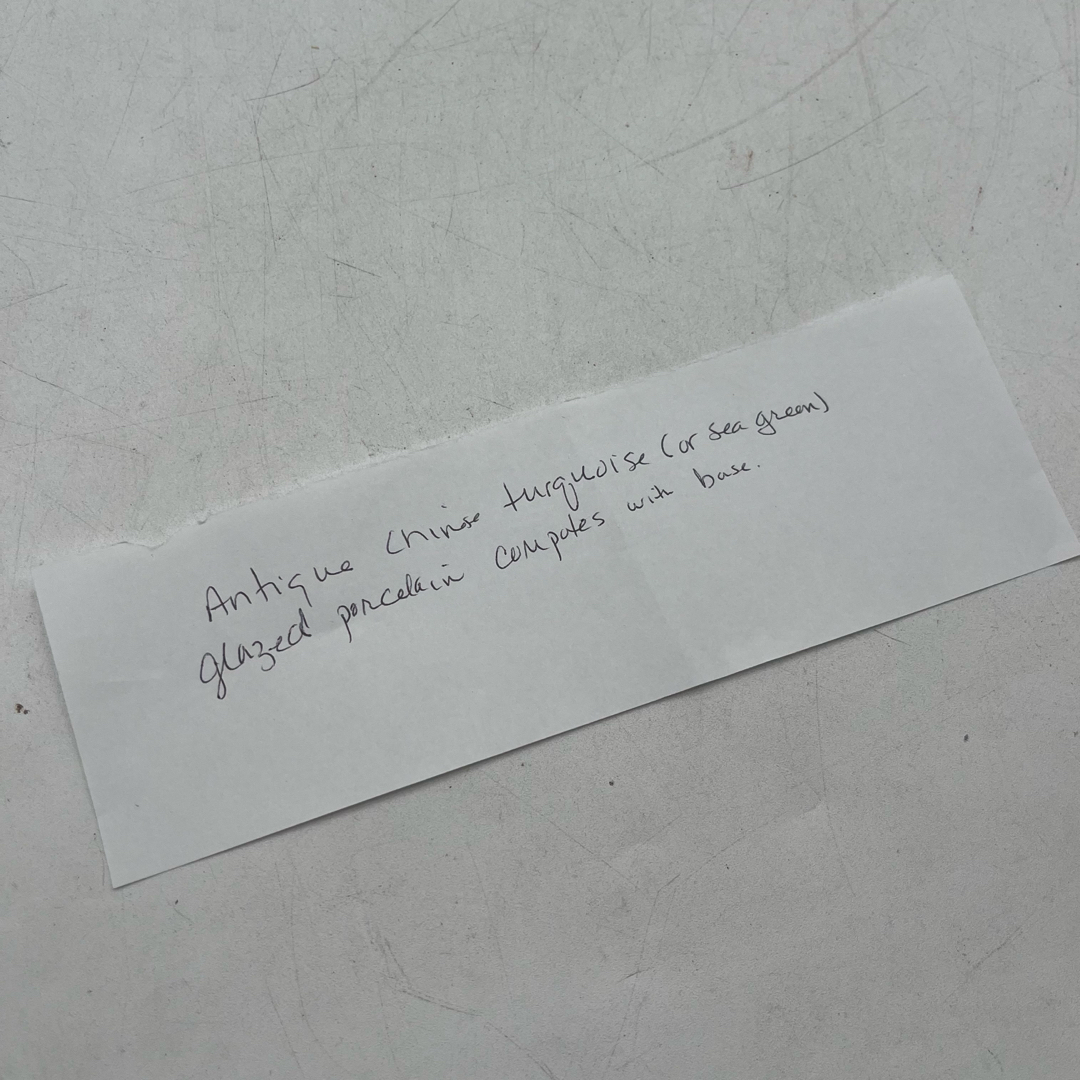 Antique Chinese turquoise (or sea green)
glazed porcelain compotes with base.